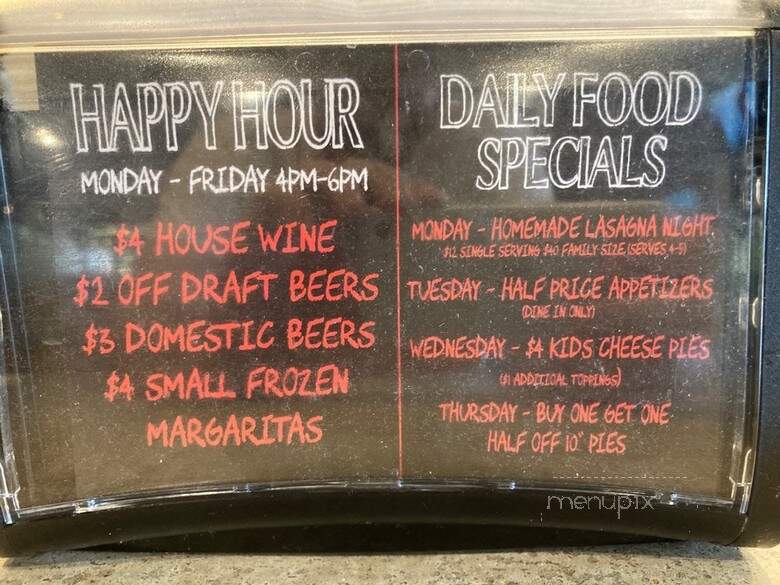 HAPPY HOUR
MONDAY - FRIDAY 4PM-6PM
$4 HOUSE WINE
$2 OFF DRAFT BEERS
$3 DOMESTIC BEERS
$4 SMALL FROZEN
MARGARITAS
DAILY FOOD
SPECIALS
MONDAY - HOMEMADE LASAGNA NIGHT.
$12 SINGLE SERVING $40 FAMILY-SIZE (SERVES 4-5)
TUESDAY - HALF PRICE APPETIZERS
(DINE IN ONLY)
WEDNESDAY - $4 KIDS CHEESE PIES
($1 ADDITIOAL TOPPINGS)
THURSDAY - BUY ONE GET ONE
HALF OFF 10" PIES
menupix